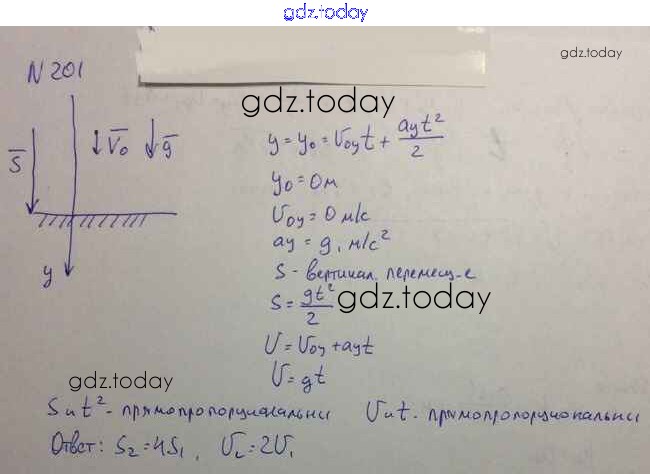 gdz.today
gdz.today
N 201
gdz.today
S̅
V̅₀
g̅
y
y = y₀ = V₀yt + ayt²/2
y₀ = 0 м
V₀y = 0 м/с
ay = g, м/с²
S - вертикал. перемещ-е
S = gt²/2
gdz.today
V = V₀y + ayt
V = gt
gdz.today
S и t² - прямопропорциональны V и t - прямопропорциональны
Ответ: S₂ = 4S₁, V₂ = 2V₁